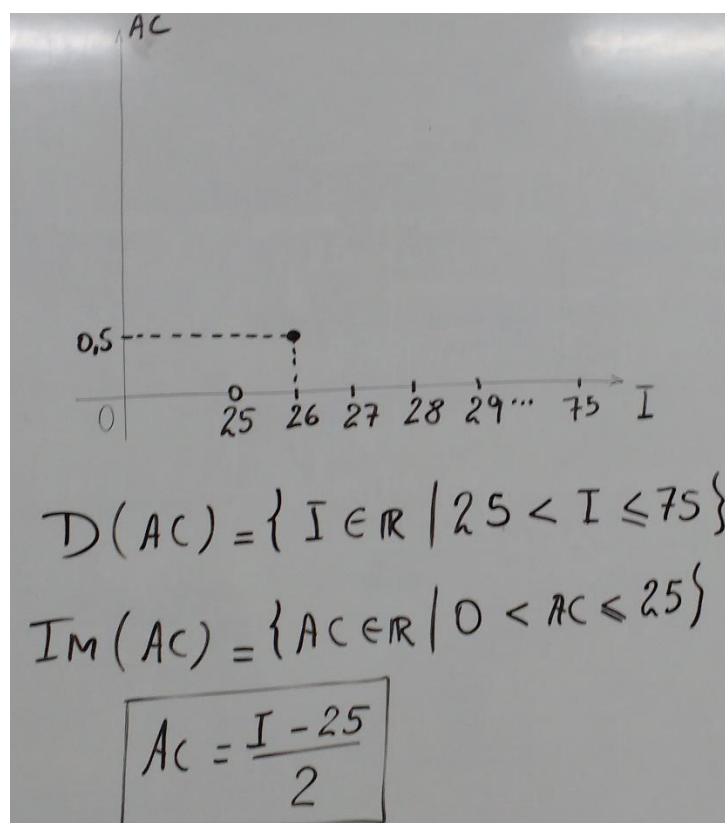 AC
0,5
0 25 26 27 28 29... 75 I
D(AC) = { I ∈ ℝ | 25 < I ≤ 75 }
Im(AC) = { AC ∈ ℝ | 0 < AC ≤ 25 }
AC = (I - 25)/2